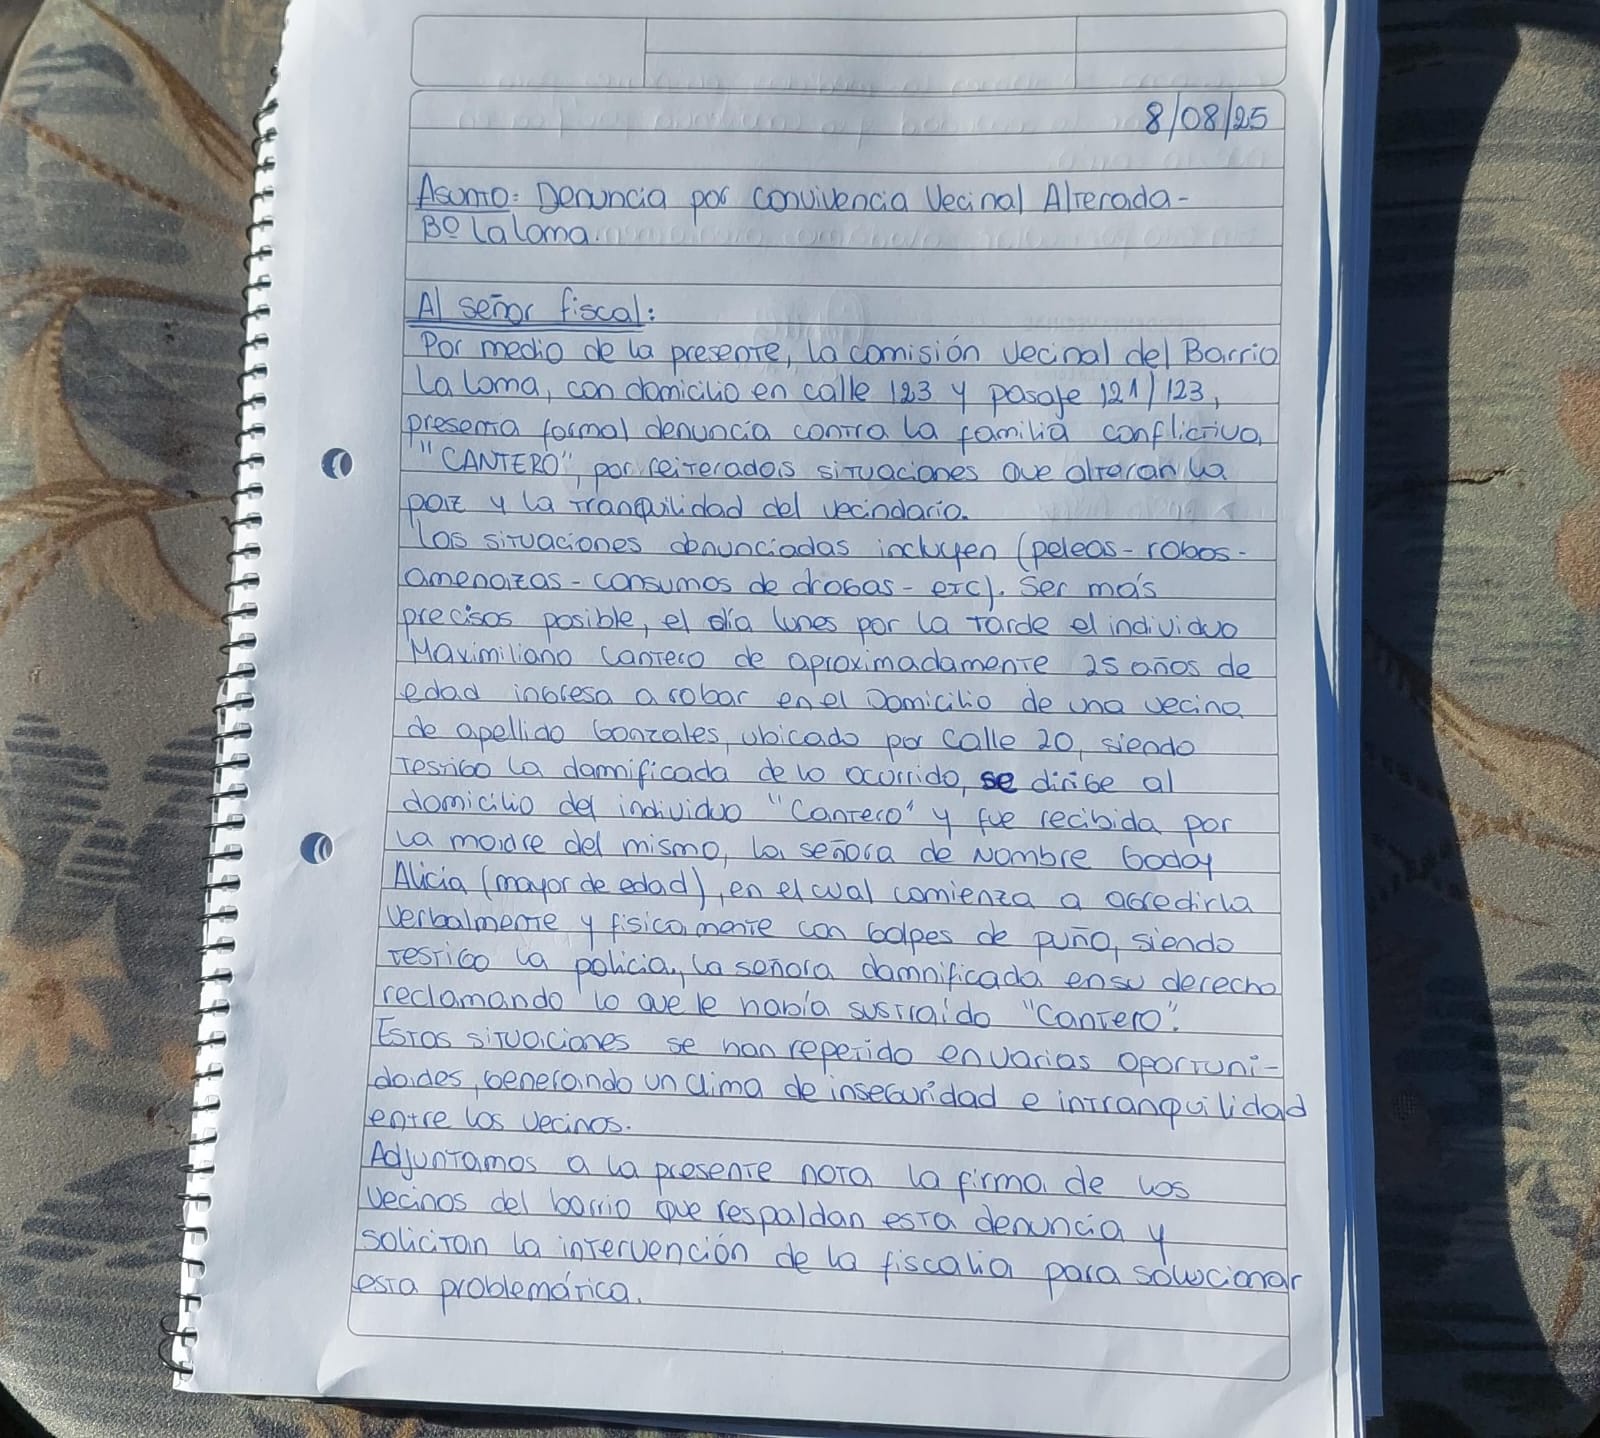 8/08/25
Asunto: Denuncia por convivencia Vecinal Alterada-
Bº La Loma.
Al señor fiscal:
Por medio de la presente, la comisión vecinal del Barrio
La Loma, con domicilio en calle 123 y pasaje 121/123,
presenta formal denuncia contra la familia conflictiva,
"CANTERO", por reiteradas situaciones que alteran la
paz y la tranquilidad del vecindario.
Las situaciones denunciadas incluyen (peleas - robos -
amenazas - consumos de drogas - etc). Ser más
precisos posible, el día lunes por la tarde el individuo
Maximiliano Cantero de aproximadamente 25 años de
edad ingresa a robar en el Domicilio de una vecina
de apellido Gonzales, ubicado por Calle 20, siendo
testigo la damnificada de lo ocurrido, se dirige al
domicilio del individuo "Cantero" y fue recibida por
la madre del mismo, la señora de Nombre Godoy
Alicia (mayor de edad), en el cual comienza a agredirla
verbalmente y físicamente con golpes de puño, siendo
testigo la policia, la señora damnificada en su derecho
reclamando lo que le había sustraído "Cantero".
Estas situaciones se han repetido en varias oportuni-
dades, generando un clima de inseguridad e intranquilidad
entre los vecinos.
Adjuntamos a la presente nota la firma de los
vecinos del barrio que respaldan esta denuncia y
solicitan la intervención de la fiscalia para solucionar
esta problemática.